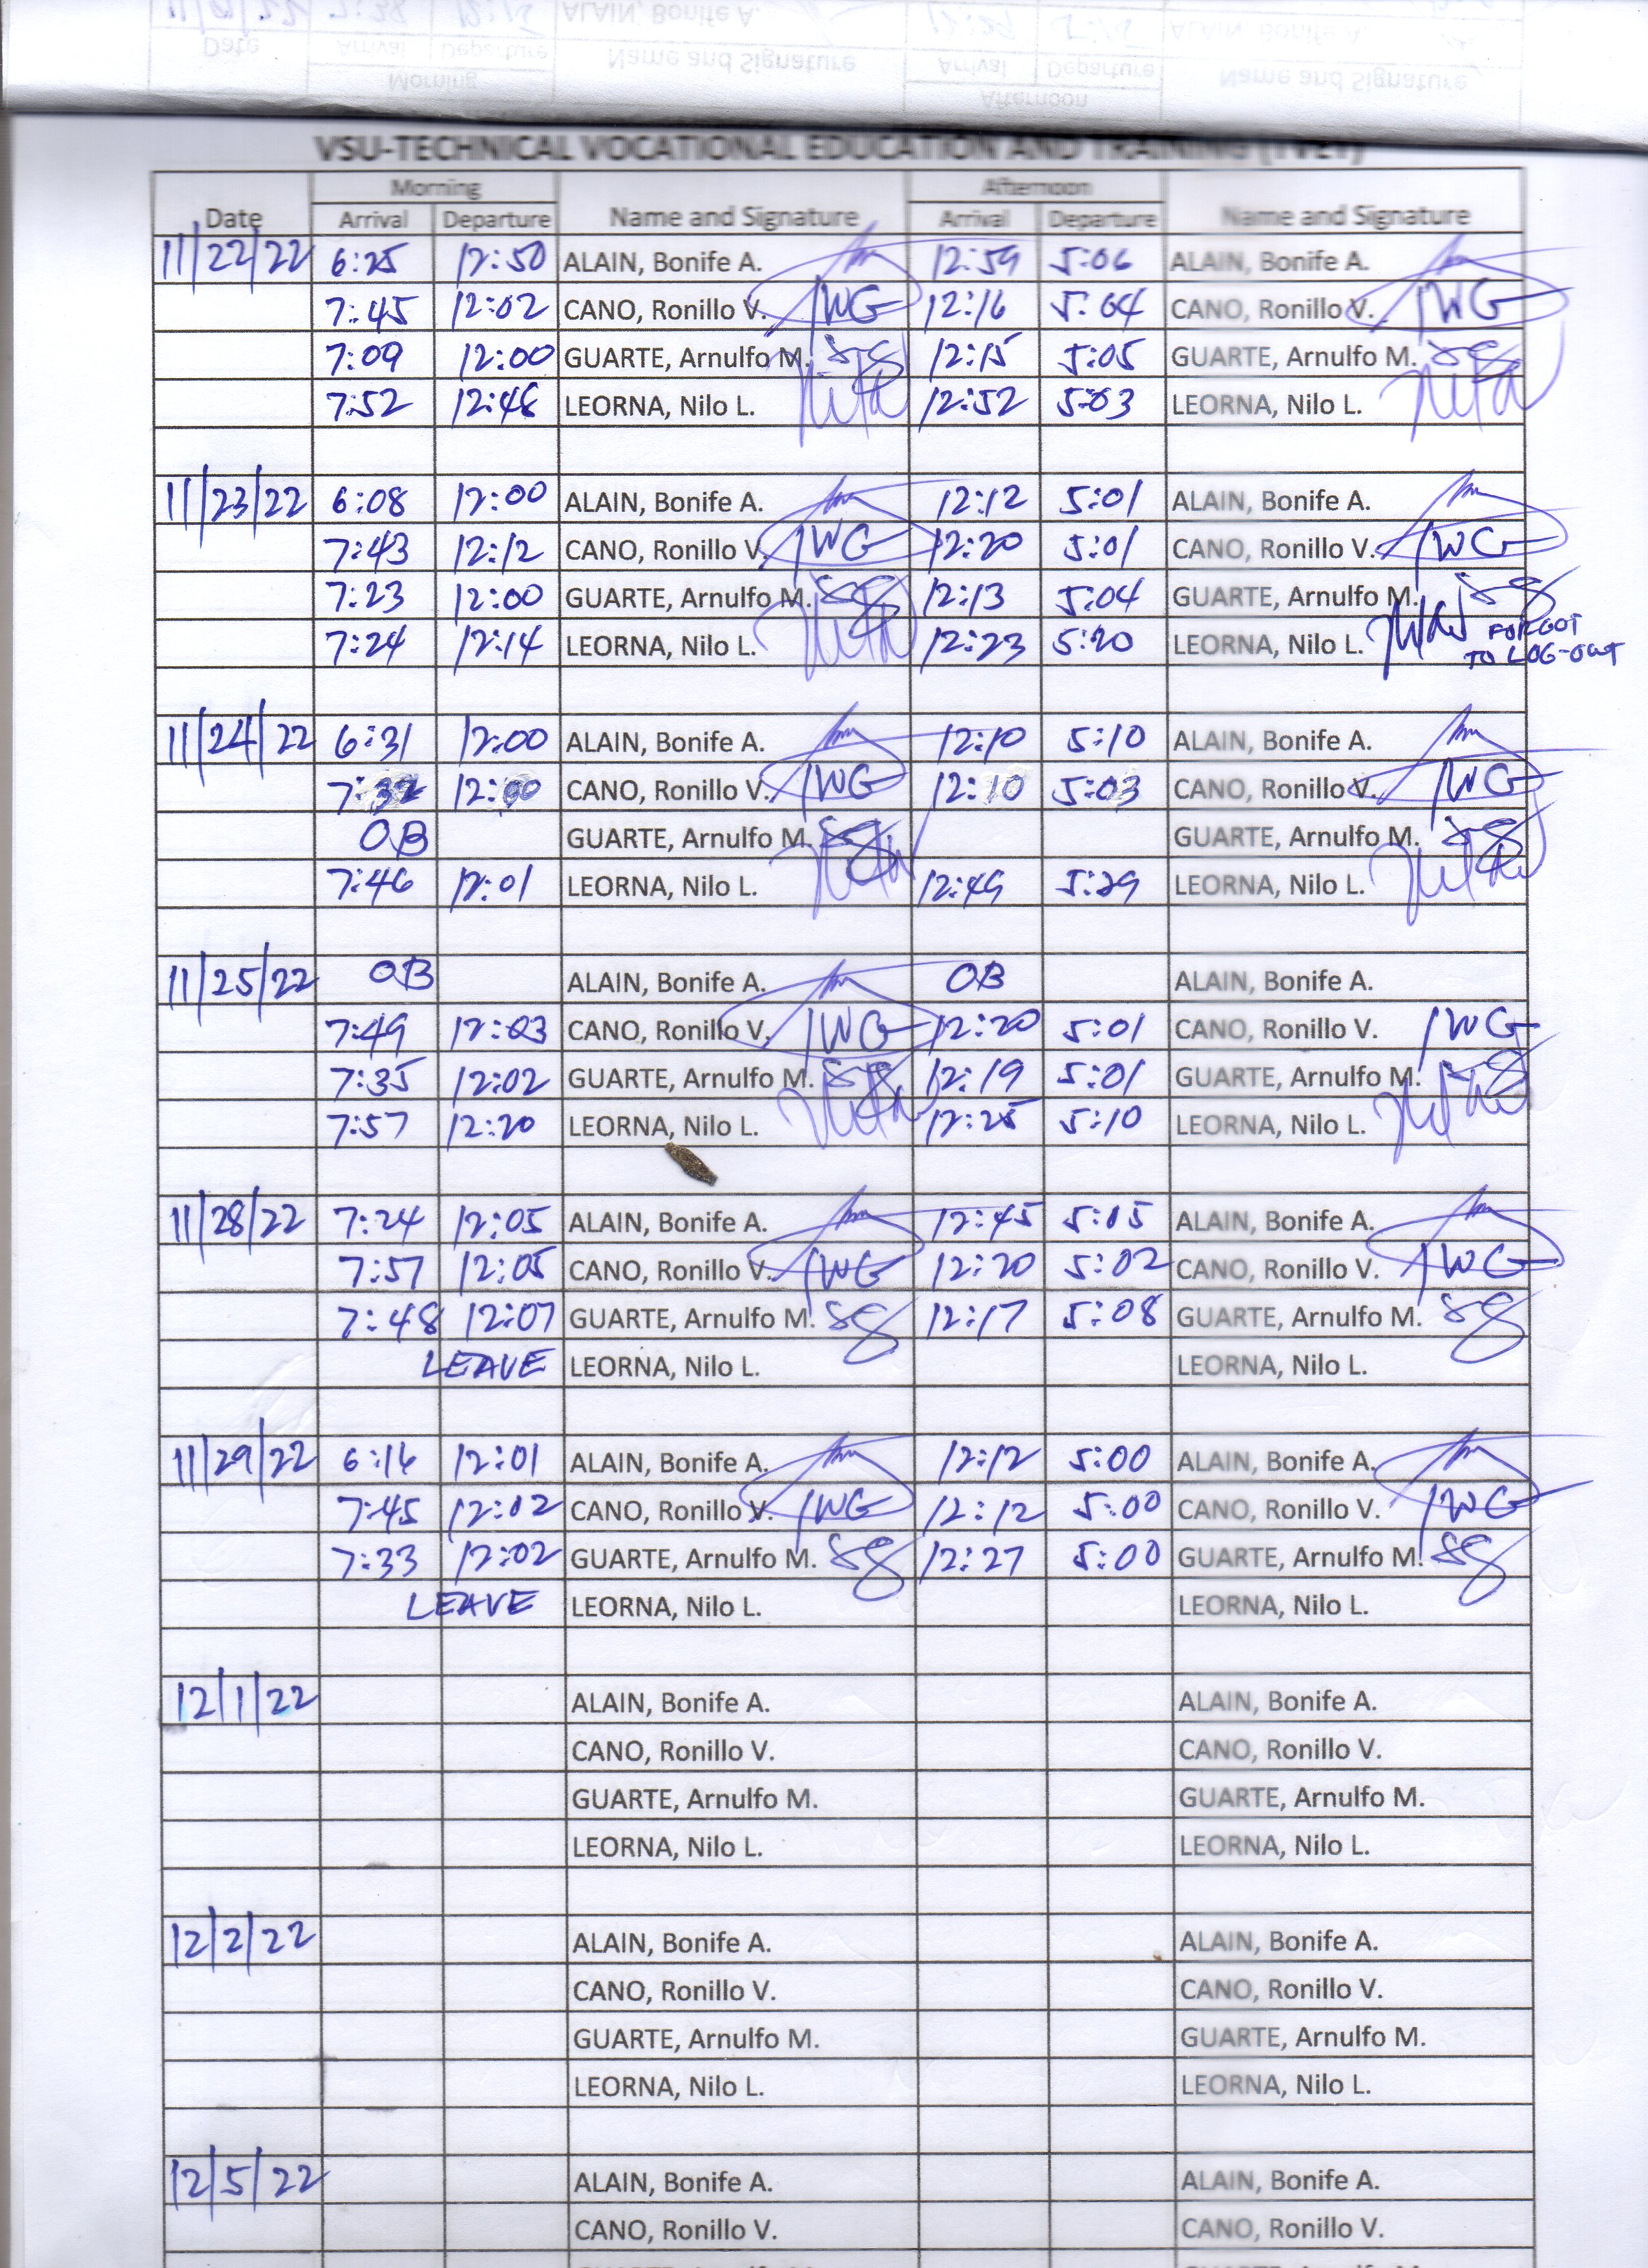 VSU-TECHNICAL VOCATIONAL EDUCATION AND TRAINING (TVET)
Morning Afternoon
Date Arrival Departure Name and Signature Arrival Departure Name and Signature
11/22/22 6:25 12:50 ALAIN, Bonife A. 12:59 5:06 ALAIN, Bonife A.
7:45 12:02 CANO, Ronillo V. 12:16 5:04 CANO, Ronillo V.
7:09 12:00 GUARTE, Arnulfo M. 12:15 5:05 GUARTE, Arnulfo M.
7:52 12:48 LEORNA, Nilo L. 12:52 5:03 LEORNA, Nilo L.
11/23/22 6:08 12:00 ALAIN, Bonife A. 12:12 5:01 ALAIN, Bonife A.
7:43 12:12 CANO, Ronillo V. 12:20 5:01 CANO, Ronillo V.
7:23 12:00 GUARTE, Arnulfo M. 12:13 5:04 GUARTE, Arnulfo M.
7:24 12:14 LEORNA, Nilo L. 12:23 5:20 LEORNA, Nilo L. FORGOT
TO LOG-OUT
11/24/22 6:31 12:00 ALAIN, Bonife A. 12:10 5:10 ALAIN, Bonife A.
12:00 CANO, Ronillo V. 12:10 5:03 CANO, Ronillo V.
OB GUARTE, Arnulfo M. GUARTE, Arnulfo M.
7:46 12:01 LEORNA, Nilo L. 12:49 5:29 LEORNA, Nilo L.
11/25/22 OB ALAIN, Bonife A. OB ALAIN, Bonife A.
7:49 12:03 CANO, Ronillo V. 12:20 5:01 CANO, Ronillo V.
7:35 12:02 GUARTE, Arnulfo M. 12:19 5:01 GUARTE, Arnulfo M.
7:57 12:20 LEORNA, Nilo L. 12:25 5:10 LEORNA, Nilo L.
11/28/22 7:24 12:05 ALAIN, Bonife A. 12:45 5:05 ALAIN, Bonife A.
7:57 12:05 CANO, Ronillo V. 12:20 5:02 CANO, Ronillo V.
7:48 12:07 GUARTE, Arnulfo M. 12:17 5:08 GUARTE, Arnulfo M.
LEAVE LEORNA, Nilo L. LEORNA, Nilo L.
11/29/22 6:16 12:01 ALAIN, Bonife A. 12:12 5:00 ALAIN, Bonife A.
7:45 12:02 CANO, Ronillo V. 12:12 5:00 CANO, Ronillo V.
7:33 12:02 GUARTE, Arnulfo M. 12:27 5:00 GUARTE, Arnulfo M.
LEAVE LEORNA, Nilo L. LEORNA, Nilo L.
12/1/22 ALAIN, Bonife A. ALAIN, Bonife A.
CANO, Ronillo V. CANO, Ronillo V.
GUARTE, Arnulfo M. GUARTE, Arnulfo M.
LEORNA, Nilo L. LEORNA, Nilo L.
12/2/22 ALAIN, Bonife A. ALAIN, Bonife A.
CANO, Ronillo V. CANO, Ronillo V.
GUARTE, Arnulfo M. GUARTE, Arnulfo M.
LEORNA, Nilo L. LEORNA, Nilo L.
12/5/22 ALAIN, Bonife A. ALAIN, Bonife A.
CANO, Ronillo V. CANO, Ronillo V.